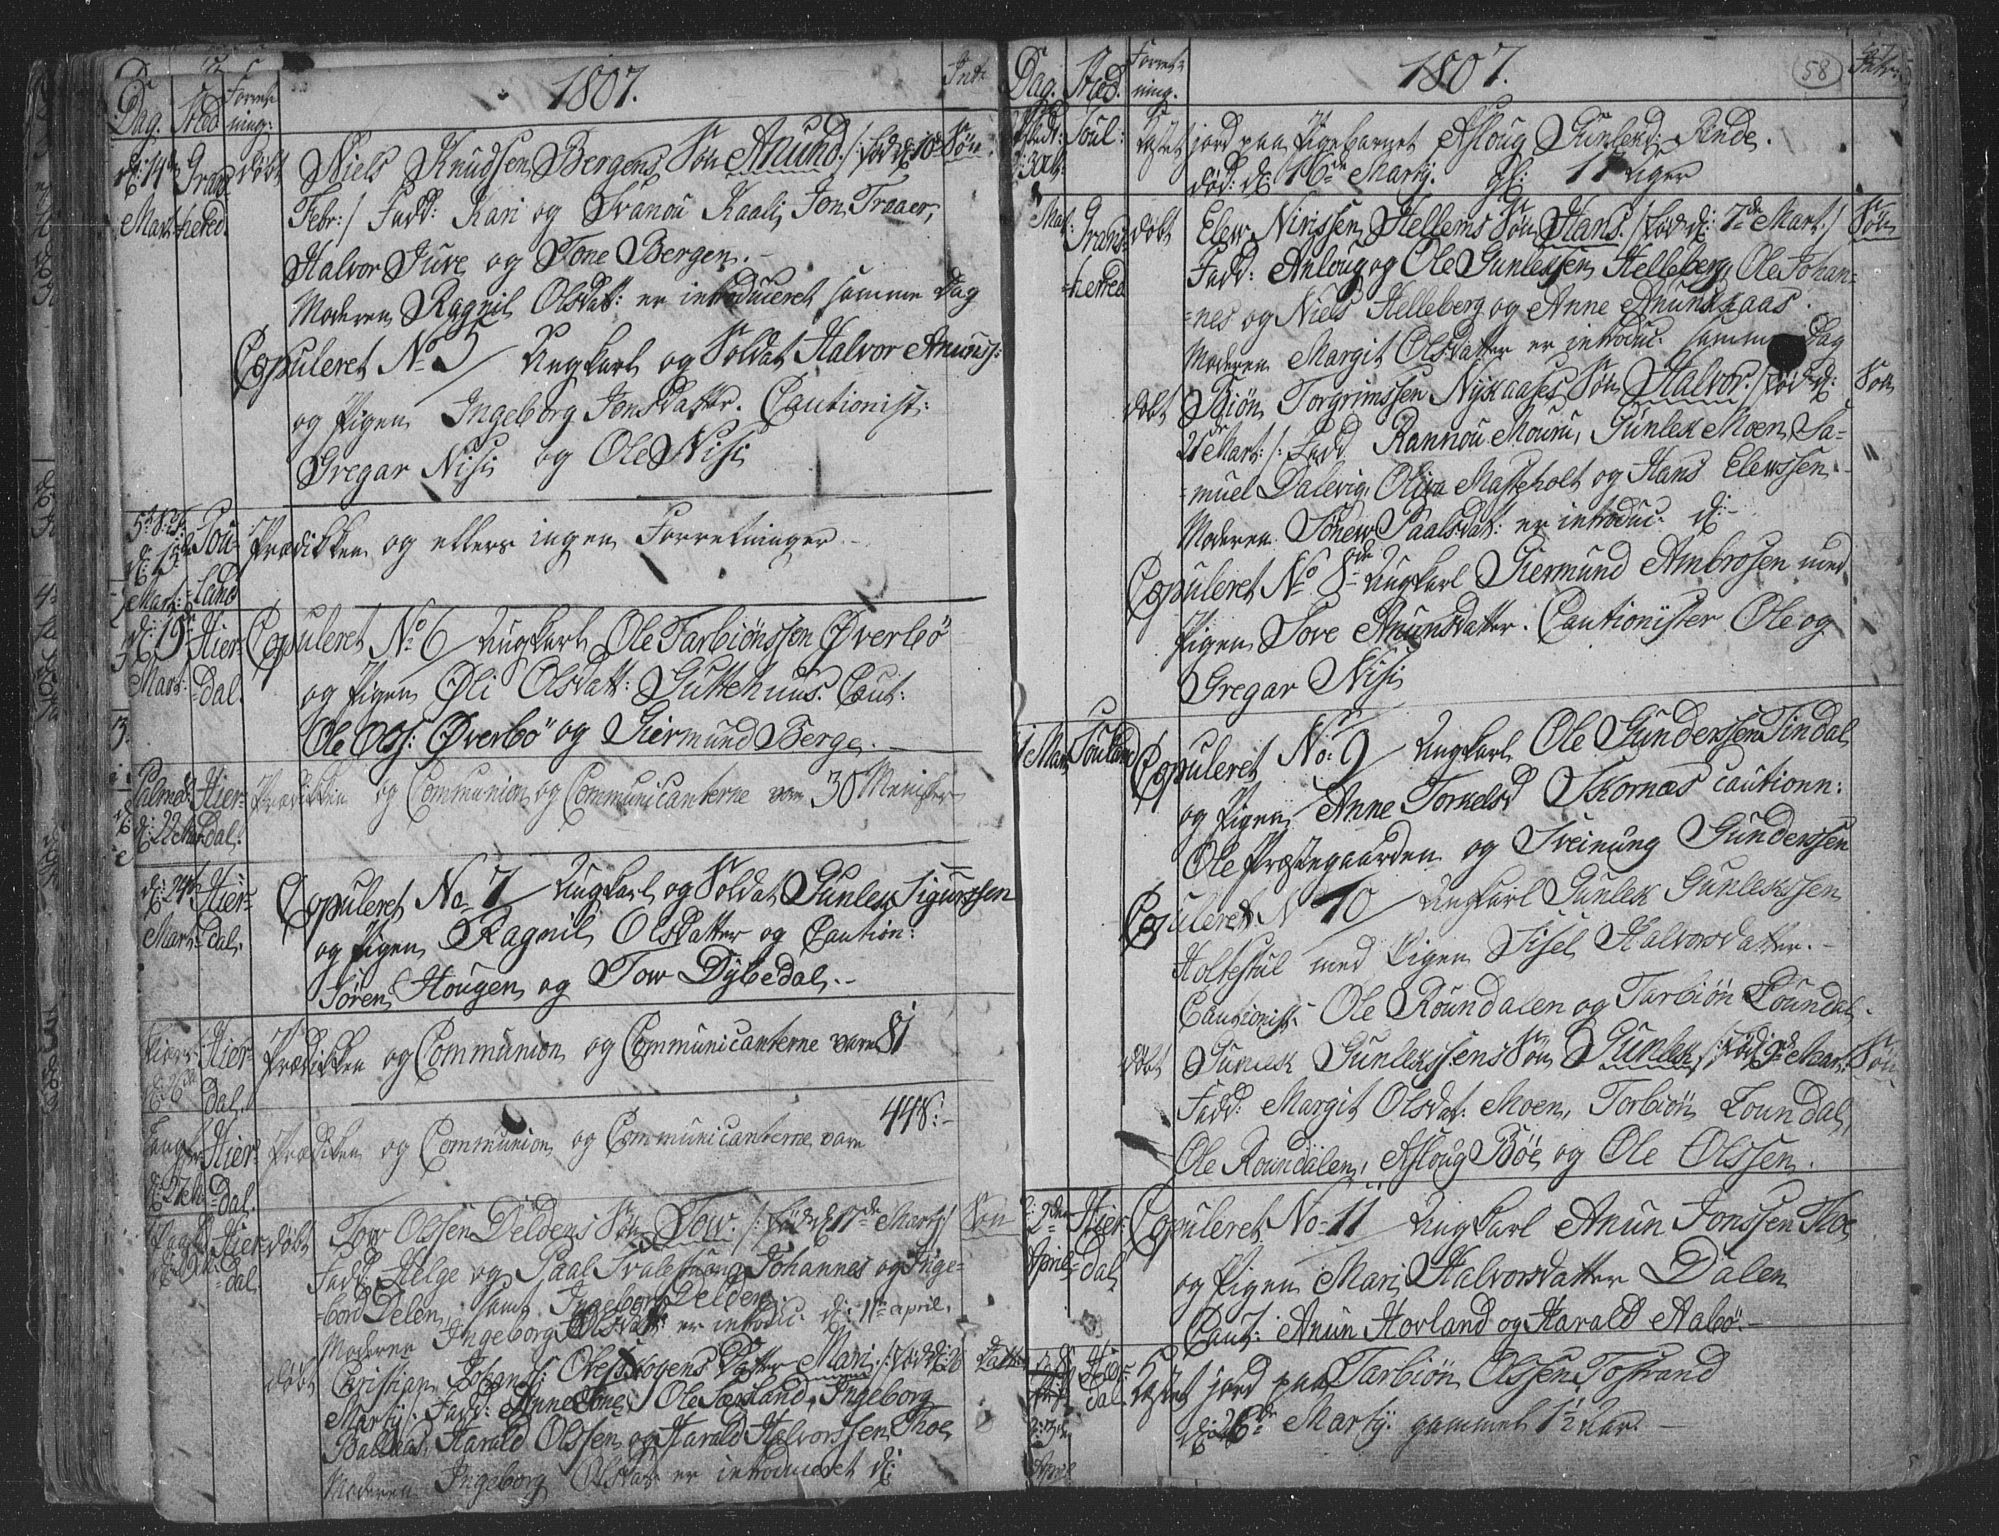 Dag. Sted Forretning: 1807. Int:
d: 14de Grans døbt Niels Knudsen Bergens Søn Anund /: fød d: 10de Søn
Mart: hered. Febr: / Fadd: Kari og Svanou Kaali, Jon Traaer,
Halvor Juve og Tone Bergen.
Moderen Ragnil Olsdat: er introduceret samme Dag
Copuleret No 5 Ungkarl og Soldat Halvor Anunss:
og Pigen Ingeborg Jonsdatter. Cautionist:
Gregar Nisi og Ole Nisi
d: 15de Sou- Prædikken og ellers ingen Forretninger
Mart: land
d: 19 Hier- Copuleret No 6 Ungkarl Ole Tarbiønssen Øverbø
Mart: dal. og Pigen Øli Olsdatt: Guttehuus. Caut:
Ole Ols: Øverbø og Giermund Berge.
Palmes: Hier- Prædikken og Communion og Communicanterne vare 30 Menisker
d: 22 Mar dal.
d: 24de Hier- Copuleret No 7 Ungkarl og Soldat Gunlek Sigurssen
Mart: dal. og Pigen Ragnil Olsdatter og Caution:
Søren Hougen og Tow Dybedal.
Hier- Prædikken og Communion og Communicanterne vare 81
d: 26de dal.
Langfr: Hier- Prædikken og Communion og Communicanterne vare 448:
d: 27de dal.
Hier- døbt Tow Olssen Deldens Søn Tow. /: fød d: 17de Martij / Søn
dal. Fadd: Helge og Paal Johannes og Inge-
bord Delen, samt Ingeborg Delden.
Moderen Ingeborg Olsdat: er introdu: d: 11te april.
døbt Christian Johans: Datter Mari. /: fød d: 26 Datter
Martij / Fadd: Anne Tone, Ole Sæland, Ingeborg
Harald Olssen og Harald Halvorssen Thoe
Moderen Ingeborg Olsdat er introduceret d:
Dag. Sted. Forretning. 1807. 58 Intr:
Soul: Kastet jord paa Pigebarnet Asloug Gunleid: Rinde.
død: d: 16de Martij. gl: 11 uger
Grans- døbt Elew Nirissen Hellems Søn Hans. /: fød d: 7de Mart: / Søn
hered Fadd: Anloug og Ole Gunlekssen Helleberg, Ole Johan-
nes og Niels Helleberg og Anne Anundkaas.
Moderen Margit Olsdatter er introduc: samme Dag
døbt Biøn Torgrimssen Nykaases Søn Halvor. /: fød d: Søn
21de Mart: /: Fadd Rannou Mouru, Gunlek Moen, Sa-
muel Dalevig, Oliva Masteholt og Hans Elewssen
Moderen Sønew Paalsdat: er introduc: d:
Copuleret No 8 Ungkarl Giermund Ambrosen med
Pigen Tove Anundsdatter. Cautionister Ole og
Gregar Nisi
Mart: Souland Copuleret No: 9 Ungkarl Ole Gunderssen Tindal
og Pigen Anne Torkelsd Skornas cautionn:
Ole Præstegaarden og Sveinung Gunderssen
Copuleret No 10 Ungkarl Gunlek Gunlekssen
Holtestul med Pigen Sisel Halvorsdatter.
Cautionist: Ole Roundalen og Tarbiøn Loundal.
døbt Gunlek Gunlekssens Søn Gunlek /: fød d: 9de Mar: Søn
Fadd: Margit Olsdat: Moen, Torbiøn Loundal,
Ole Roundalen, Asloug Bøe og Ole Olssen.
2den Hier- Copuleret No 11 Ungkarl Anun Jonssen Thoe
April dal og Pigen Mari Halvorsdatter Dalen
Caut: Anun Hovland og Harald Aabø.
Hier- Kastet jord paa Tarbiøn Olssen Tostrand
dal. d: 26de Martij. gammel 1½ Aar.